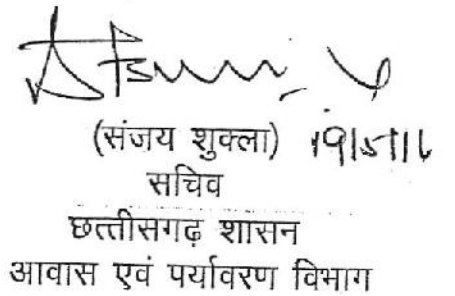 (संजय शुक्ला) 19/5/16
सचिव
छत्तीसगढ़ शासन
आवास एवं पर्यावरण विभाग